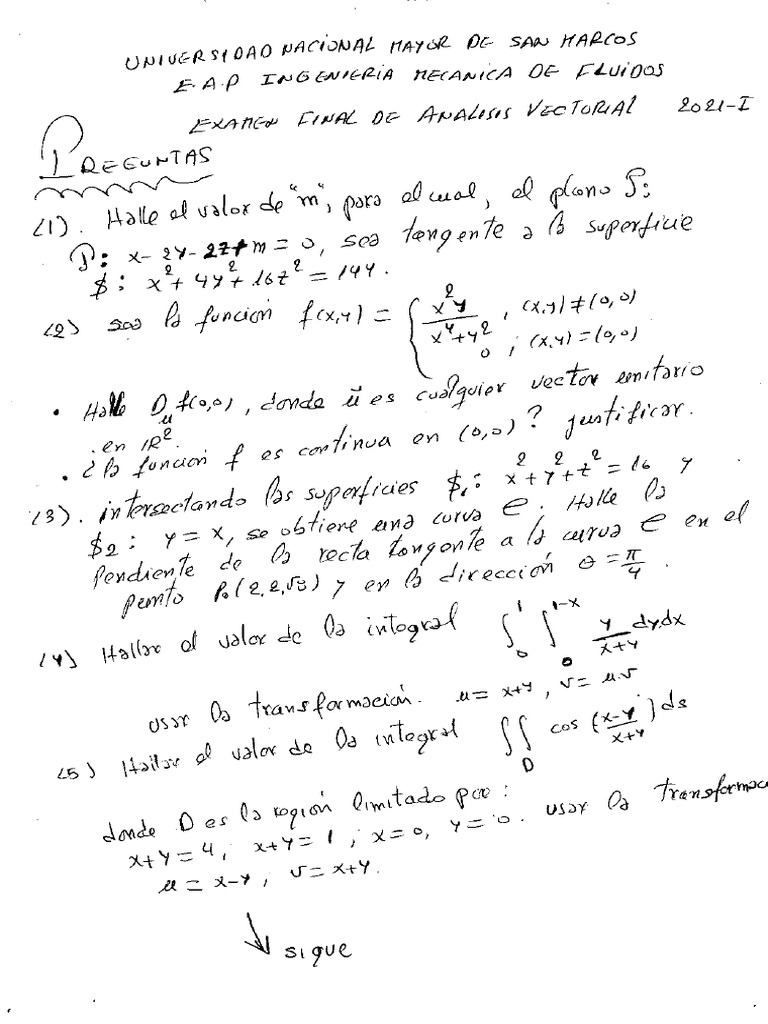 UNIVERSIDAD NACIONAL MAYOR DE SAN MARCOS
E.A.P INGENIERIA MECANICA DE FLUIDOS
EXAMEN FINAL DE ANALISIS VECTORIAL 2021-I
PREGUNTAS
(1). Halle el valor de "m", para el cual, el plano P:
P: x-2y-2z+m=0, sea tangente a la superficie
$: x²+4y²+16z²=144.
(2) sea la función f(x,y) = { x²y/(x⁴+y²), (x,y)≠(0,0)
0 ; (x,y)=(0,0)
• Halle D_u f(0,0), donde ū es cualquier vector unitario
en IR².
• ¿la función f es continua en (0,0)? justificar.
(3). intersectando las superficies $₁: x²+y²+z²=16 y
$₂: y=x, se obtiene una curva C. Halle la
pendiente de la recta tangente a la curva C en el
punto P₀(2,2,√8) y en la dirección θ=π/4.
(4) Hallar el valor de la integral ∫₀¹ ∫₀^(1-x) y/(x+y) dy dx
usar la transformación. u=x+y, v=u.v
(5) Hallar el valor de la integral ∫∫_D cos((x-y)/(x+y)) ds
donde D es la región limitado por:
x+y=4, x+y=1, x=0, y=0. usar la transformac
u=x-y, v=x+y.
sigue